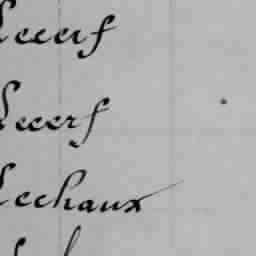 Lecerf
Lecerf
Lechaux